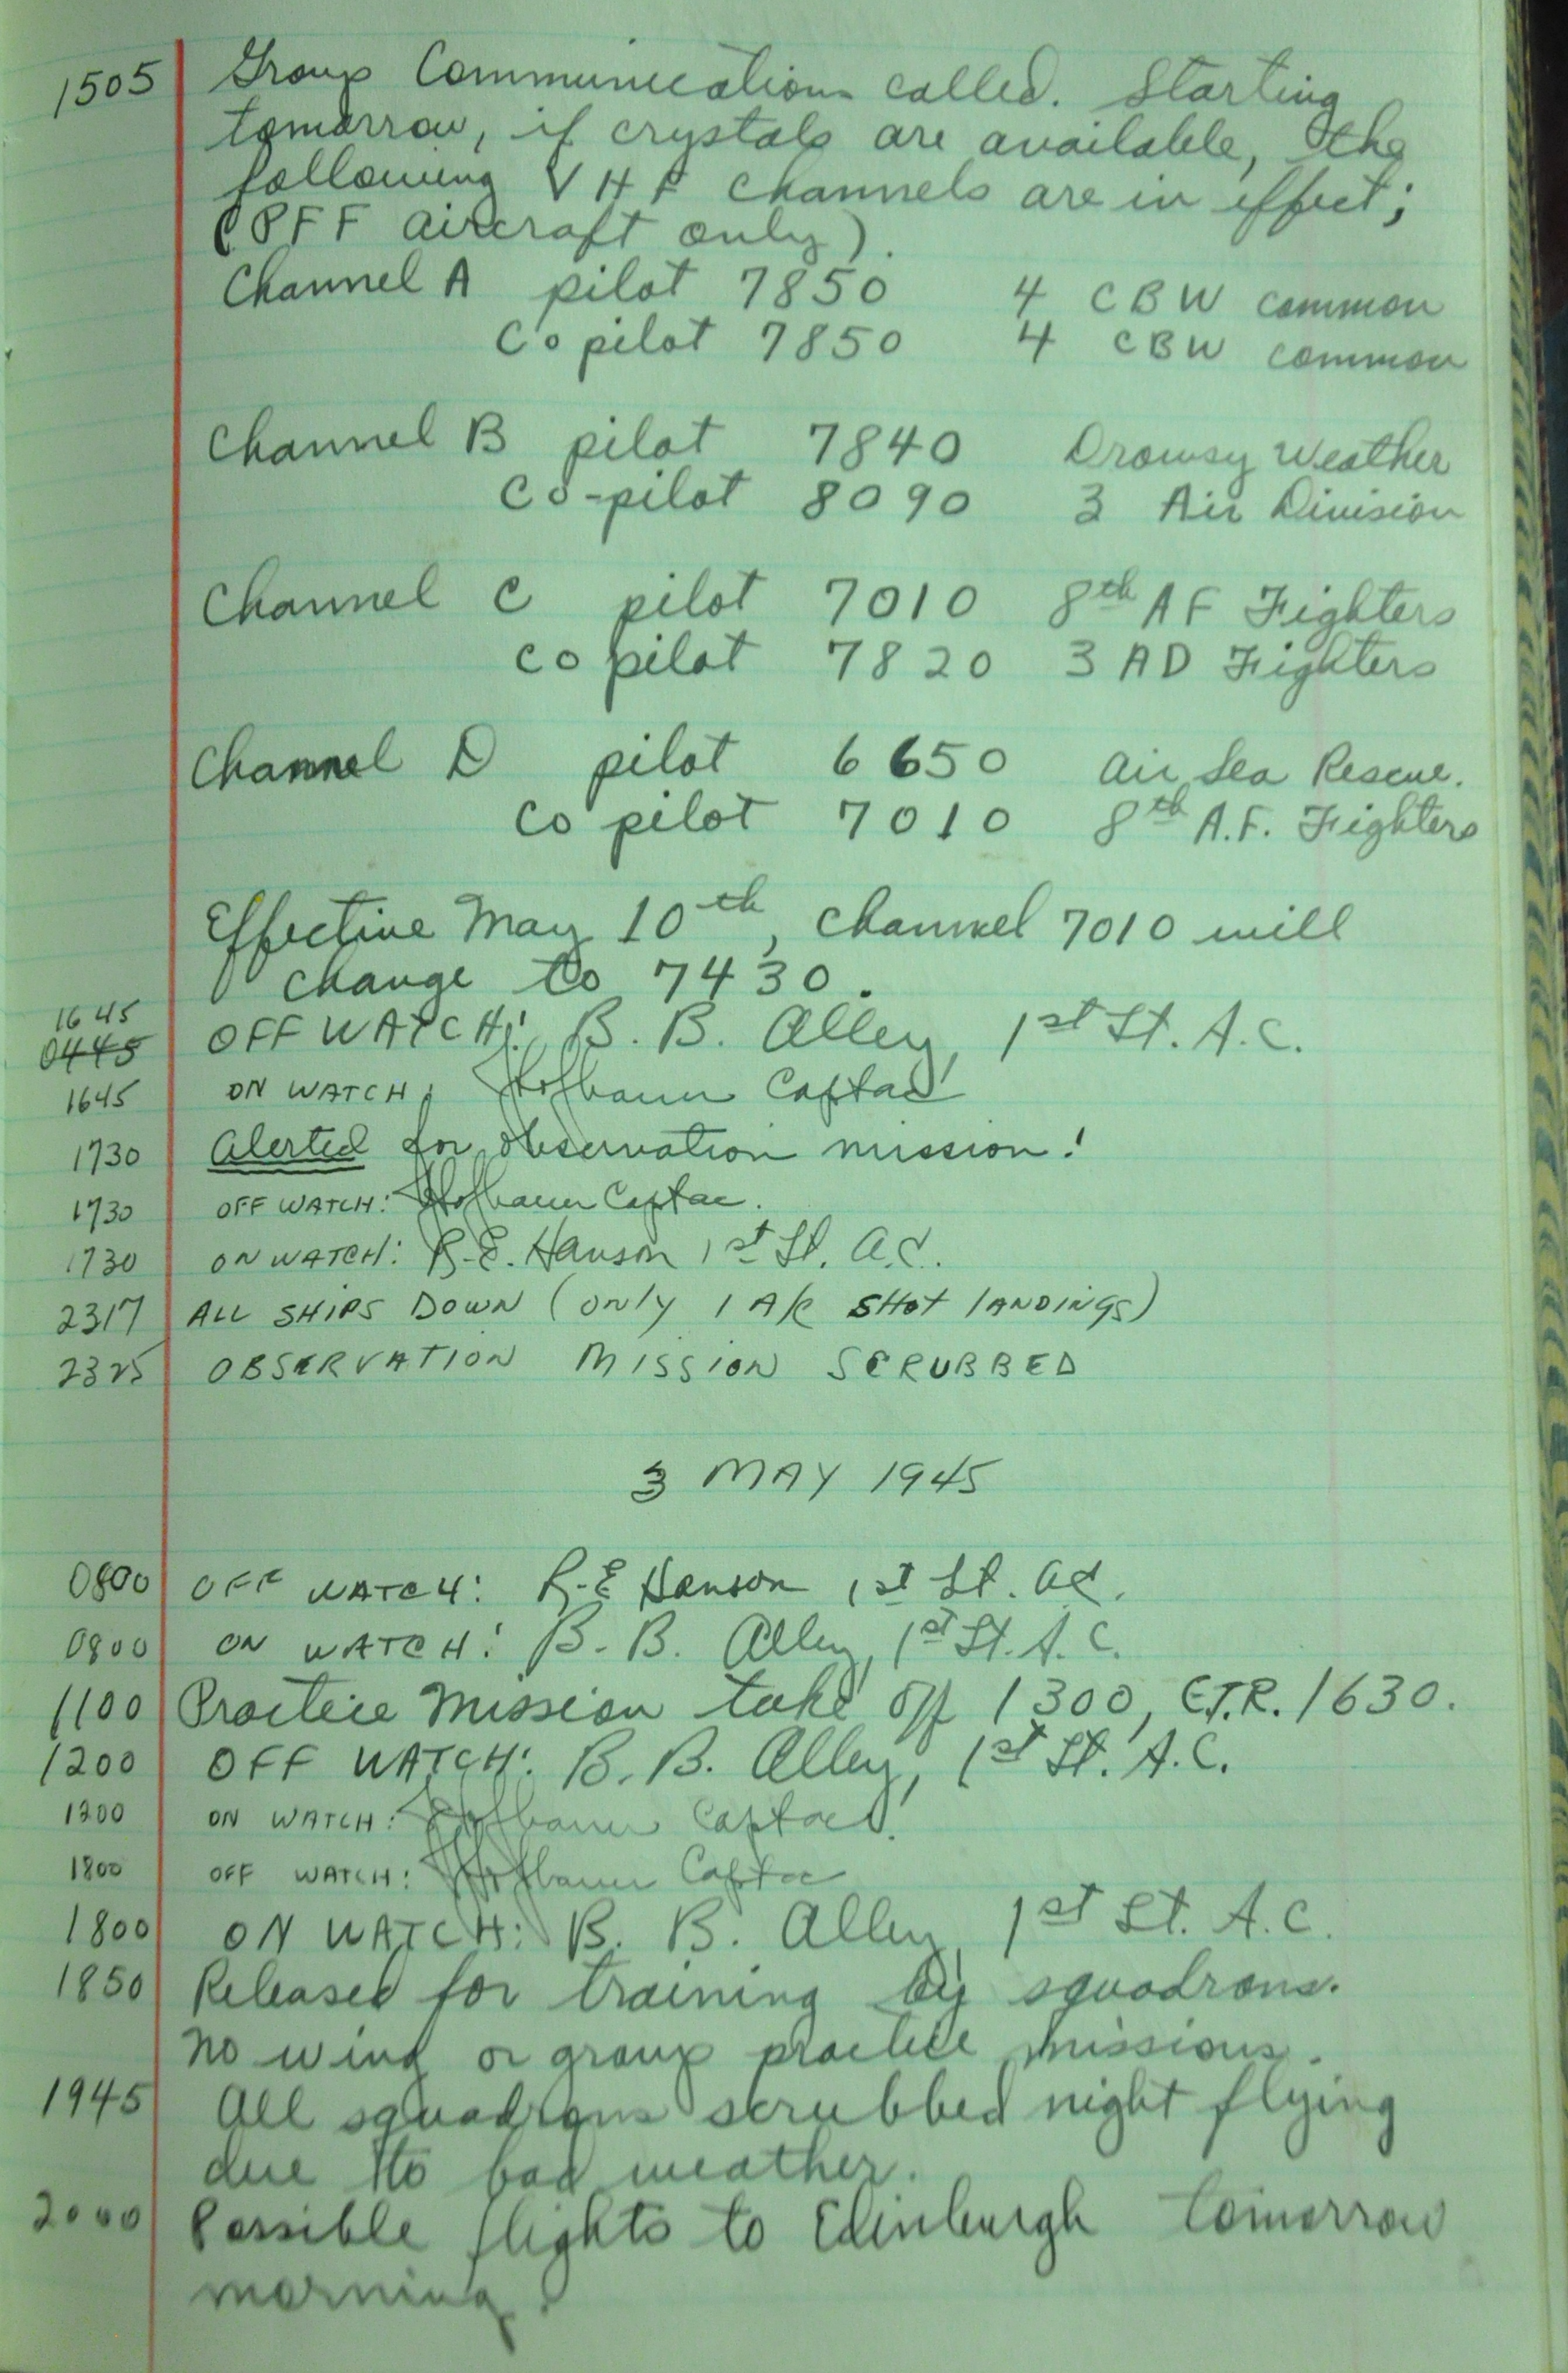 1505 Group Communications called. Starting
tomorrow, if crystals are available, the
following VHF channels are in effect;
(PFF aircraft only).
Channel A pilot 7850 4 CBW common
Co pilot 7850 4 CBW common
Channel B pilot 7840 Drowsy Weather
Co-pilot 8090 3 Air Division
Channel C pilot 7010 8th AF Fighters
Co pilot 7820 3 AD Fighters
Channel D pilot 6650 Air Sea Rescue.
Co pilot 7010 8th A.F. Fighters
Effective May 10th, channel 7010 will
change to 7430.
1645
0445 OFF WATCH: B. B. Alley, 1st Lt. A.C.
1645 ON WATCH: Hofbauer Capt ac
1730 Alerted for observation mission!
1730 OFF WATCH: Hofbauer Capt ac.
1730 ON WATCH: R.E. Hanson 1st Lt. A.C.
2317 ALL SHIPS DOWN (only 1 A/C SHOT LANDINGS)
2325 OBSERVATION MISSION SCRUBBED
3 MAY 1945
0800 OFF WATCH: R.E Hanson 1st Lt. AC.
0800 ON WATCH: B. B. Alley, 1st Lt. A.C.
1100 Practice Mission take off 1300, E.T.R. 1630.
1200 OFF WATCH: B. B. Alley, 1st Lt. A.C.
1200 ON WATCH: Hofbauer Capt ac.
1800 OFF WATCH: Hofbauer Capt ac
1800 ON WATCH: B. B. Alley, 1st Lt. A.C.
1850 Released for training by squadrons.
No wing or group practice missions.
1945 All squadrons scrubbed night flying
due to bad weather.
2000 Possible flights to Edinburgh tomorrow
morning.